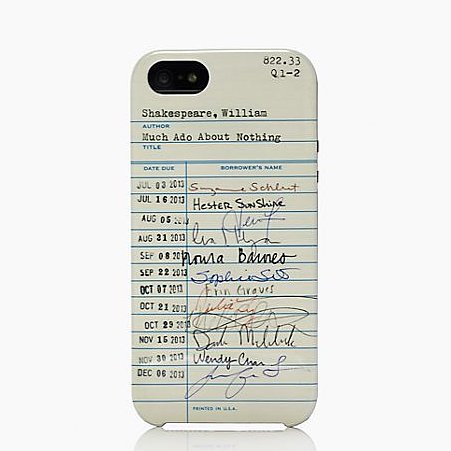 822.33
Q1-2
Shakespeare, William
AUTHOR
Much Ado About Nothing
TITLE
DATE DUE BORROWER'S NAME
JUL 03 2013 Suzanne
JUL 16 2013 Hester Sunshine
AUG 05 2013
AUG 31 2013
SEP 08 2013 Barnes
SEP 22 2013 Sophia
OCT 07 2013 Erin Graves
OCT 21 2013 Julia
OCT 29 2013
NOV 15 2013
NOV 30 2013 Wendy Chan
DEC 06 2013
PRINTED IN U.S.A.